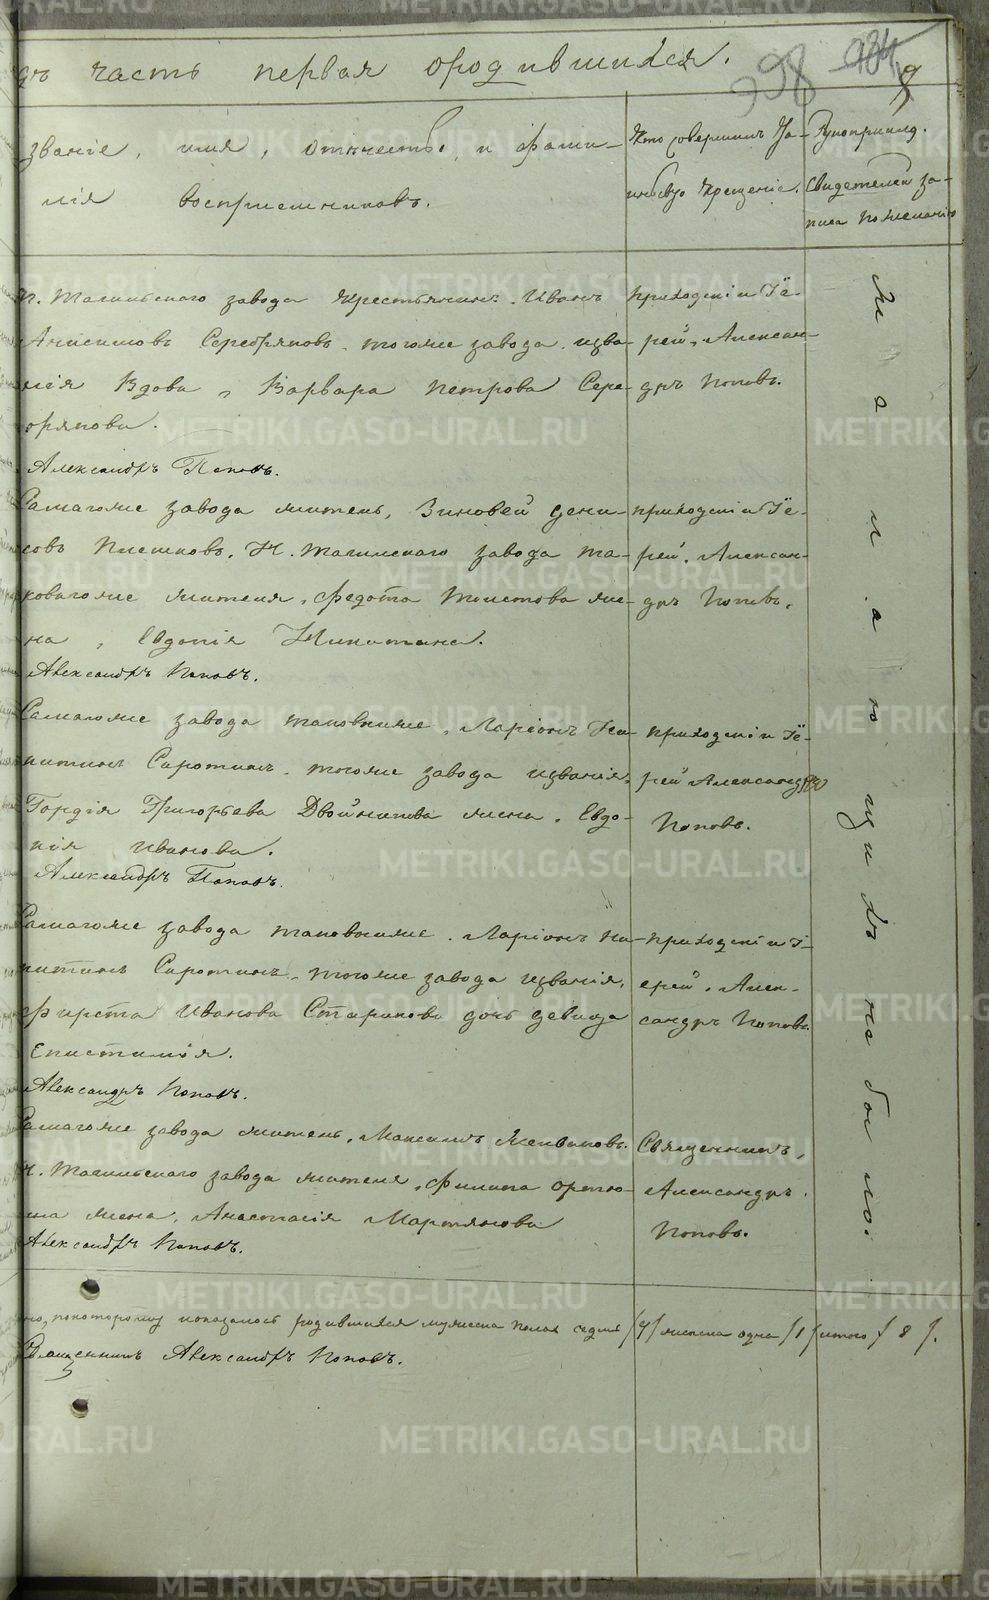 дъ часть первая ородившихся.
398
званіе, имя, отчество, и фами-
лія воспріемниковъ.
Кто совершилъ Та-
инство Крещеніе.
Рукоприклад.
свидетелей за-
писа пожеланію
Н. Тагильскаго завода крестьянинъ, Иванъ
Анисимовъ Серебряковъ, тогоже завода изва-
нія Вдова, Варвара Петрова Сере-
брякова.
Александръ Поповъ.
приходскій Іе-
рей, Алексан-
дръ Поповъ.
Самагоже завода житель, Зиновей Дени-
совъ Плешковъ, Н. Тагилскаго завода та-
ковагоже жителя, Федота Толстова же-
на, Евдокія Никитина.
Александръ Поповъ.
приходскій Іе-
рей, Алексан-
дръ Поповъ.
Самагоже завода таковыйже, Ларіонъ Ни-
китинъ Сиротинъ, тогоже завода изванія,
Гордія Григорьева Двойникова жена, Евдо-
кія Иванова.
Александръ Поповъ.
приходскій Іе-
рей Александръ
Поповъ.
Самагоже завода таковыйже, Ларіонъ Ни-
китинъ Сиротинъ, тогоже завода изванія,
Фирста Иванова Старикова дочь девица
Епистимія.
Александръ Поповъ.
приходскій І-
ерей, Алек-
сандръ Поповъ.
Самагоже завода житель, Максимъ
Н. Тагильскаго завода жителя, Филипа
жена, Анастасія Мартянова
Александръ Поповъ.
Священникъ,
Александръ
Поповъ.
Желающихъ не было.
покоторому показалось родившихся мужеска полая седмь /7/ женска одна /1/ итого / 8 /.
Священникъ Александръ Поповъ.
METRIKI.GASO-URAL.RU